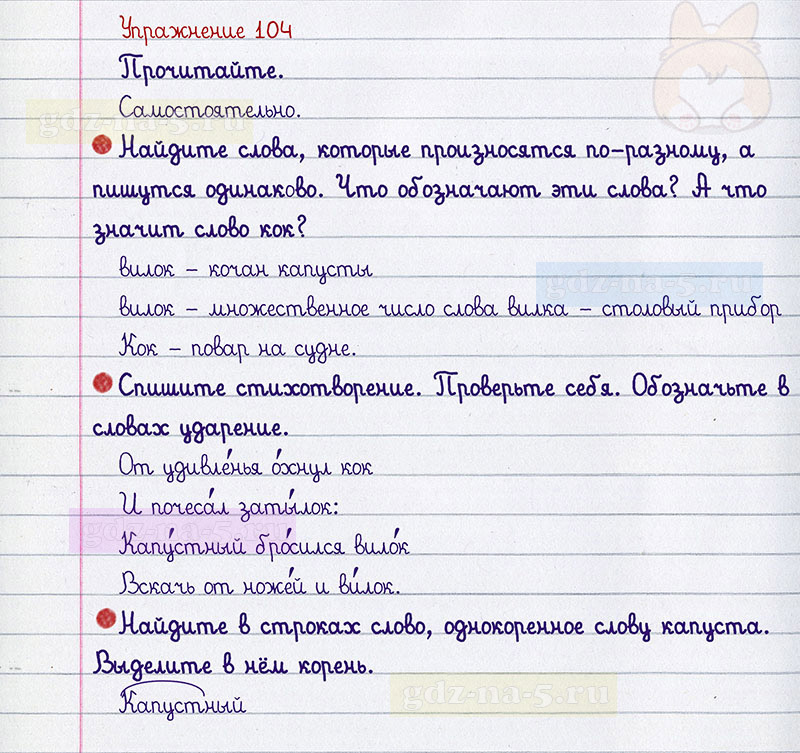 Упражнение 104
Прочитайте.
Самостоятельно.
gdz-na-5.ru
Найдите слова, которые произносятся по-разному, а
пишутся одинаково. Что обозначают эти слова? А что
значит слово кок?
вилок – кочан капусты
gdz-na-5.ru
вилок – множественное число слова вилка – столовый прибор
Кок – повар на судне.
Спишите стихотворение. Проверьте себя. Обозначьте в
словах ударение.
От удивле́нья о́хнул кок
И почеса́л заты́лок:
gdz-na-5.ru
Капу́стный бро́сился вило́к
Вскачь от ноже́й и ви́лок.
Найдите в строках слово, однокоренное слову капуста.
Выделите в нём корень.
gdz-na-5.ru
Капустный